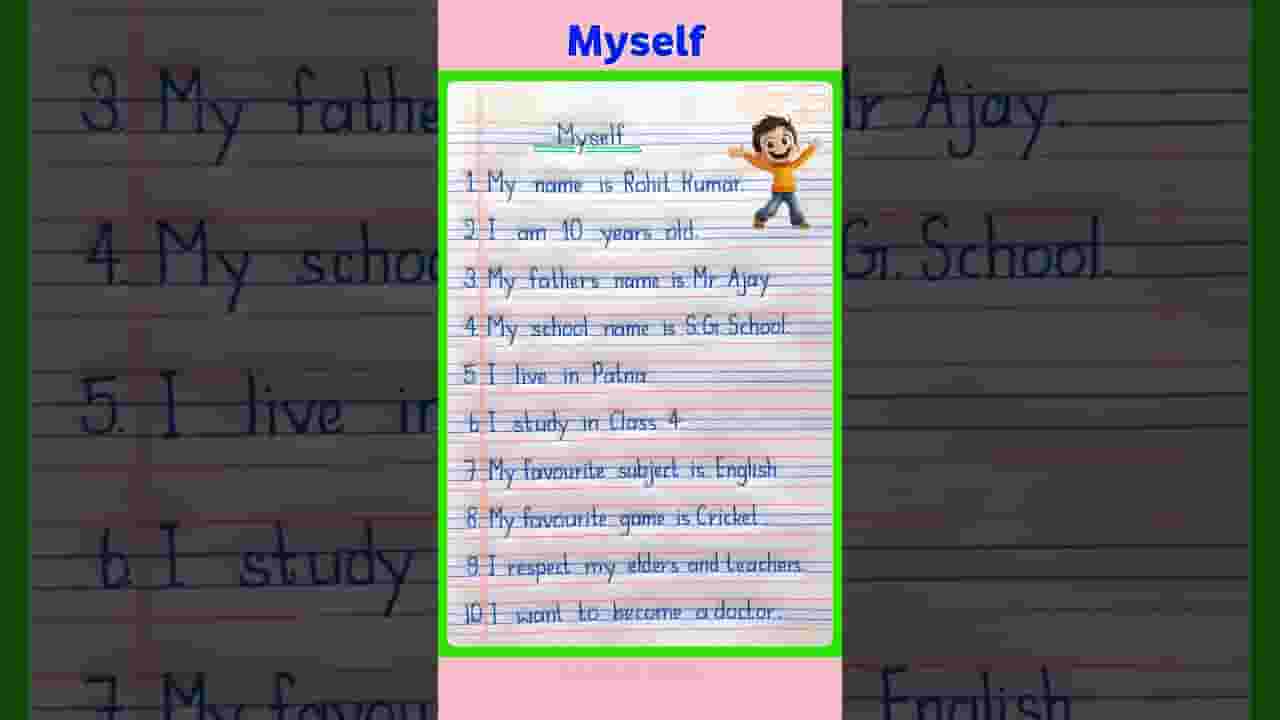 Myself
Myself
1. My name is Rohit Kumar.
2. I am 10 years old.
3. My fathers name is Mr Ajay.
4. My school name is S.G. School.
5. I live in Patna
6. I study in Class 4
7. My favourite subject is English
8. My favourite game is Cricket.
9. I respect my elders and teachers.
10. I want to become a doctor.
3. My fathe
r Ajay.
4. My schoo
G. School.
5. I live in
6. I study
7. My favou
English